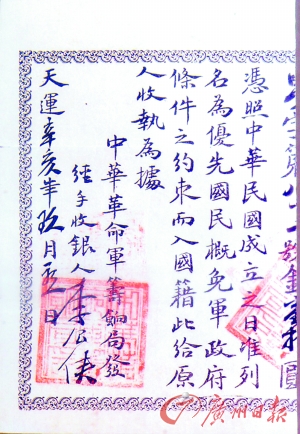 號
圓
憑照中華民國成立之日准列
名為優先國民概免軍政府
條件之約束而入國籍此給原
人收執為據
中華革命軍籌餉局發
經手收銀人李公俠
天運辛亥年玖月 日
廣州日报